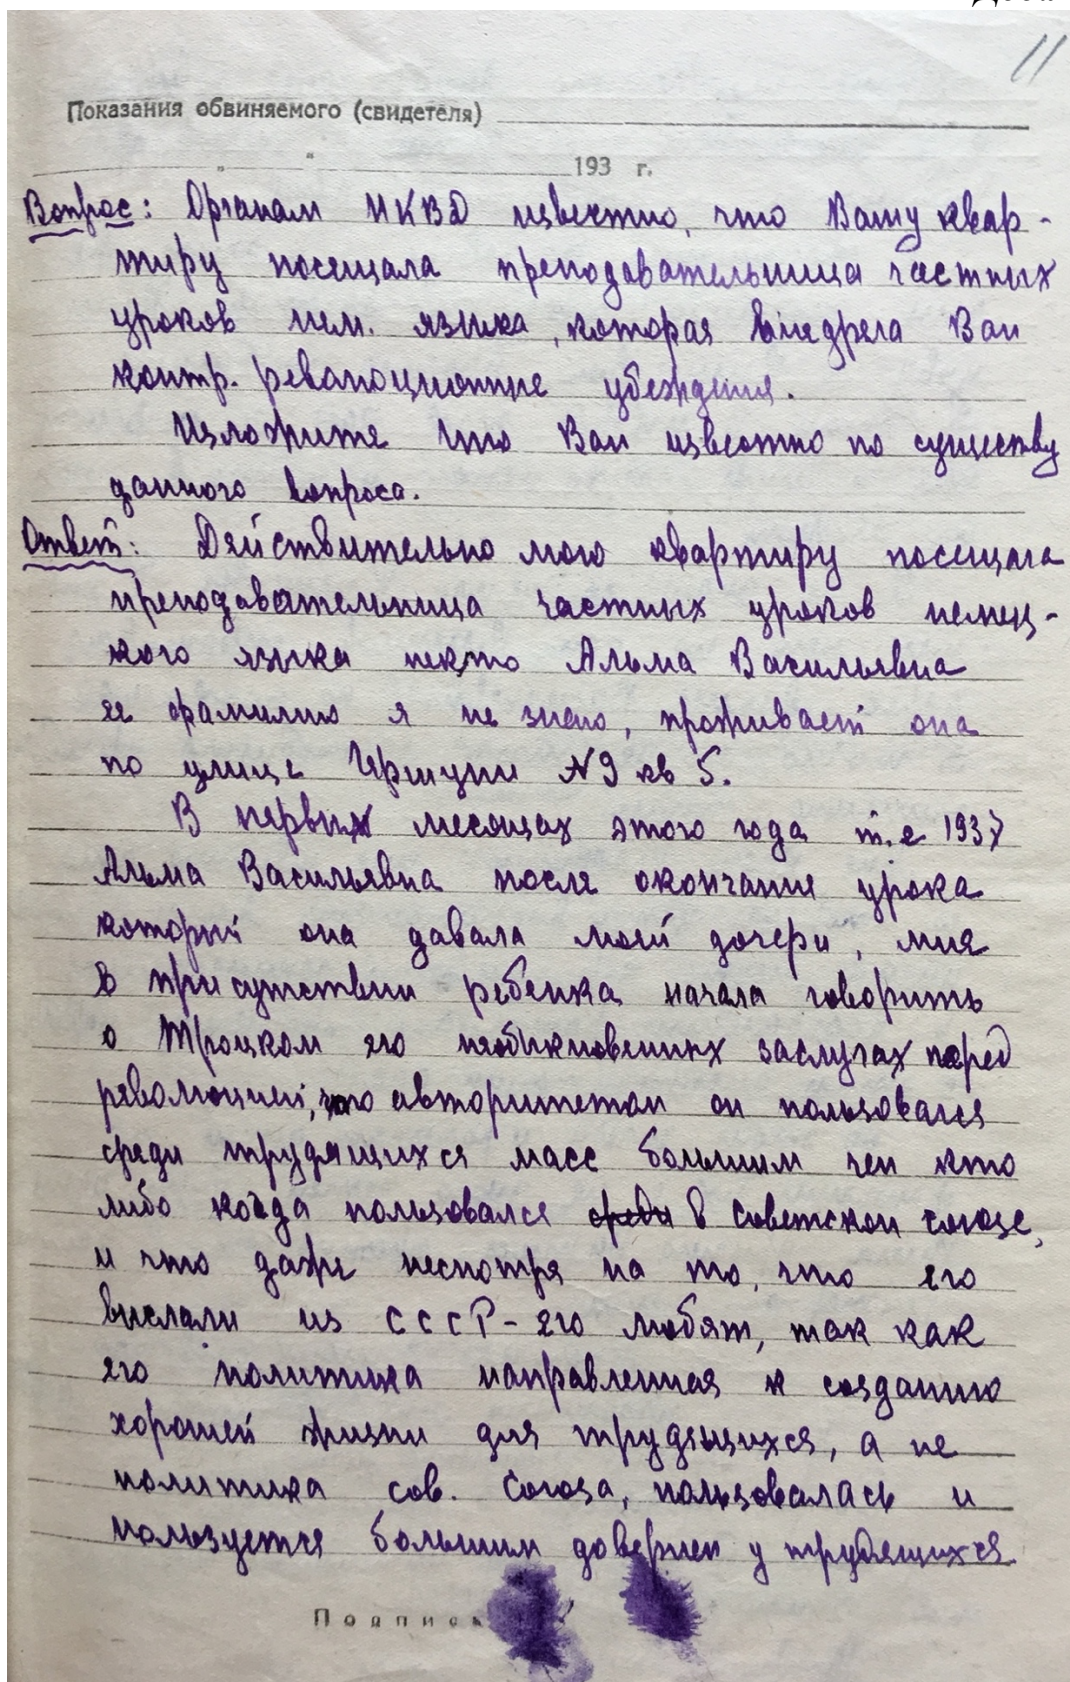 11
Показания обвиняемого (свидетеля)
" " 193 г.
Вопрос: Органам НКВД известно, что Вашу квар-
тиру посещала преподавательница частных
уроков нем. языка, которая внедряла Вам
контр. революционные убеждения.
Изложите что Вам известно по существу
данного вопроса.
Ответ: Действительно мою квартиру посещала
преподавательница частных уроков немец-
кого языка некто Альма Васильевна
ее фамилию я не знаю, проживает она
по улице №9 кв 5.
В первых месяцах этого года т.е 1937
Альма Васильевна после окончания урока
который она давала моей дочери, мне
в присутствии ребенка начала говорить
о Троцком его необыкновенных заслугах перед
революцией, что авторитетом он пользовался
среди трудящихся масс большим чем кто
либо когда пользовался среди в советском союзе,
и что даже несмотря на то, что его
выслали из СССР - его любят, так как
его политика направленная к созданию
хорошей жизни для трудящихся, а не
политика сов. Союза, пользовалась и
пользуется большим доверием у трудящихся
Подпись